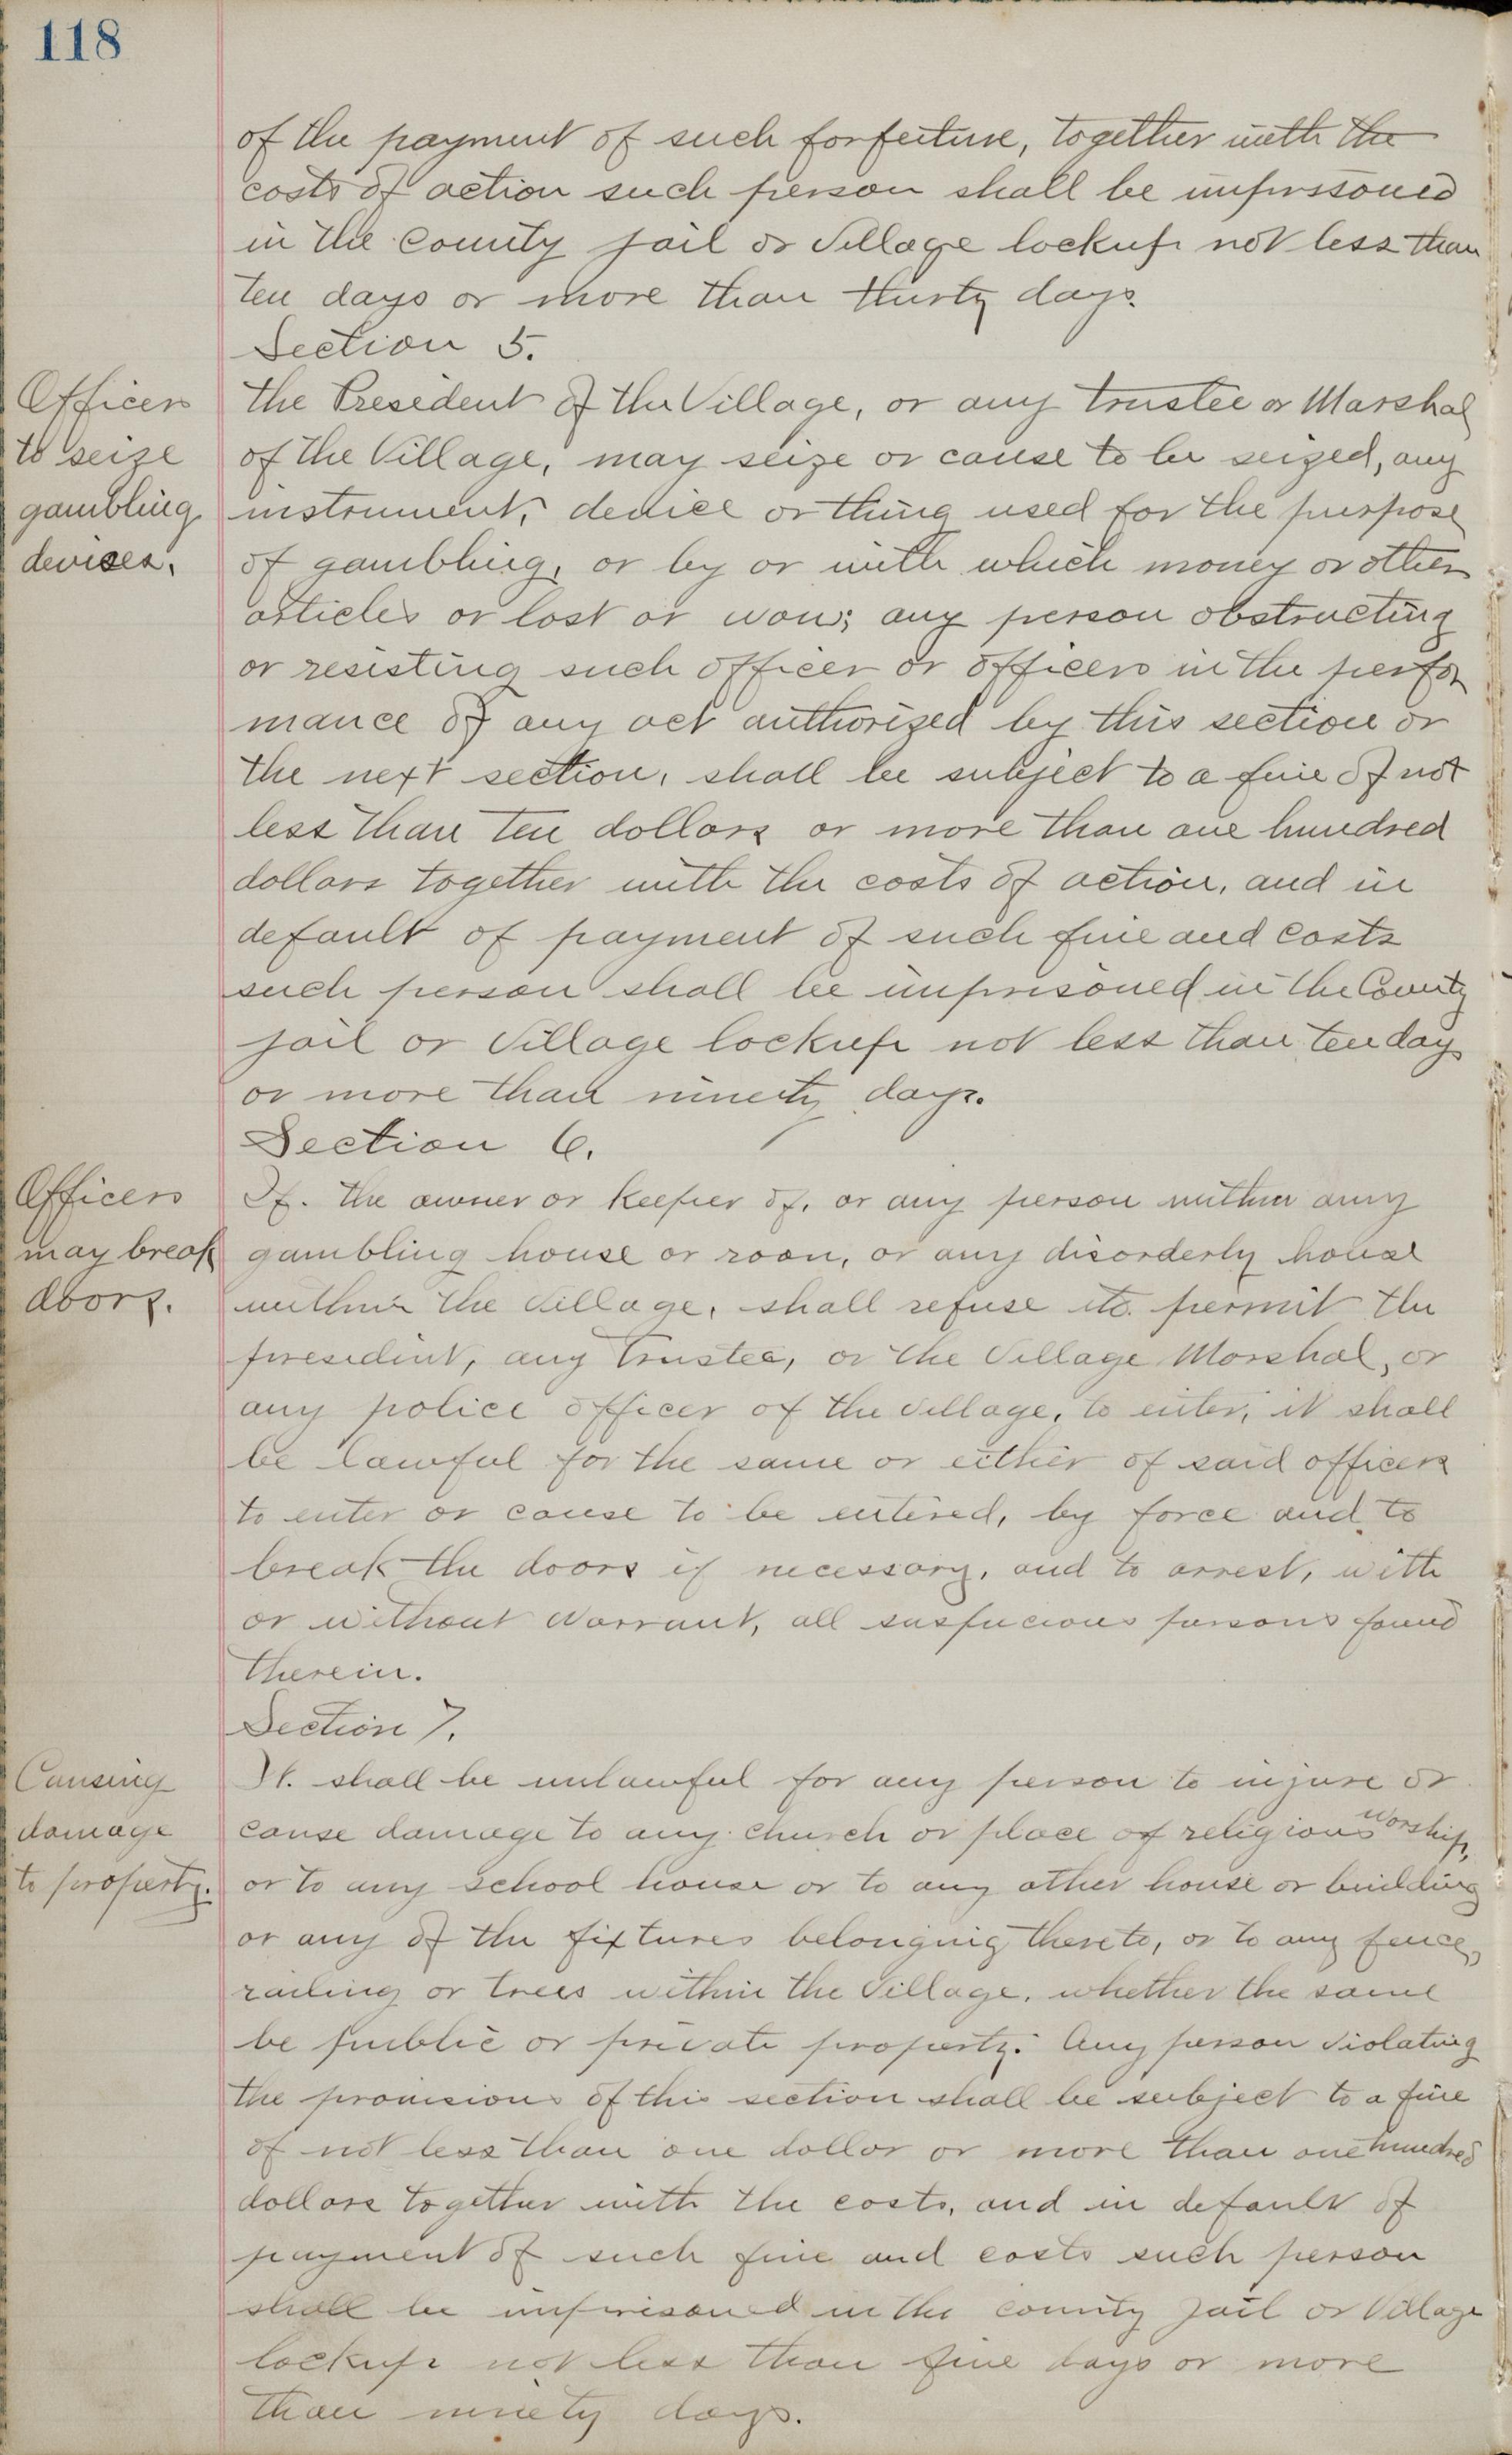 118
of the payment of such forfeiture, together with the
costs of action such person shall be imprissoned
in the County jail or Village lockup not less than
ten days or more than thirty days.
Section 5.
Officers
to seize
gambling
devises.
The President of the Village, or any trustee or Marshal
of the Village, may seize or cause to be seized, any
instrument, device or thing used for the purpose
of gambling, or by or with which money or other
articles or lost or won; any person obstructing
or resisting such officer or officers in the perfor
mance of any act authorized by this section or
the next section, shall be subject to a fine of not
less than ten dollars or more than one hundred
dollars together with the costs of action, and in
default of payment of such fine and costs
such person shall be imprisoned in the County
jail or Village lockup not less than ten days
or more than ninety days.
Section 6.
Officers
may break
doors.
If. the owner or keeper of, or any person within any
gambling house or room, or any disorderly house
within the Village, shall refuse to permit the
president, any trustee, or the Village Marshal, or
any police officer of the Village, to enter, it shall
be lawful for the same or either of said officers
to enter or cause to be entered, by force and to
break the doors if necessary, and to arrest, with
or without Warrant, all suspicious persons found
therein.
Section 7.
Causing
damage
to property.
It. shall be unlawful for any person to injure or
cause damage to any church or place of religious worship,
or to any school house or to any other house or building
or any of the fixtures belonging thereto, or to any fence,
railing or trees within the Village, whether the same
be public or private property. Any person violating
the provisions of this section shall be subject to a fine
of not less than one dollar or more than one hundred
dollars together with the costs, and in default of
payment of such fine and costs such person
shall be imprisoned in the county jail or Village
lockup not less than five days or more
than ninety days.